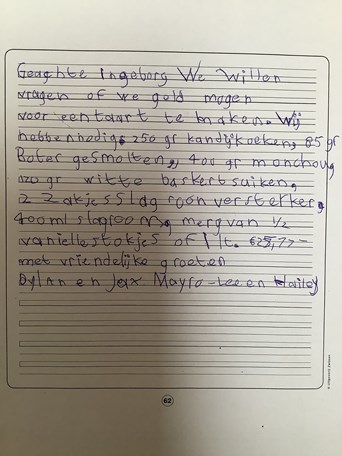 Geachte Ingeborg We Willen
vragen of we geld mogen
voor een taart te maken. Wij
hebben nodig 250 gr kandijkoeken, 85 gr
Boter gesmolten, 400 gr monchou,
120 gr witte baskertsuiken,
2 zakjes Slagroon versterker,
400ml slagroom, merg van 1/2
vaniellestokjes of 1 lt. €25,77-
met vriendelijke groeten
Dylan en Jax Mayro-Lee en Hailey
62